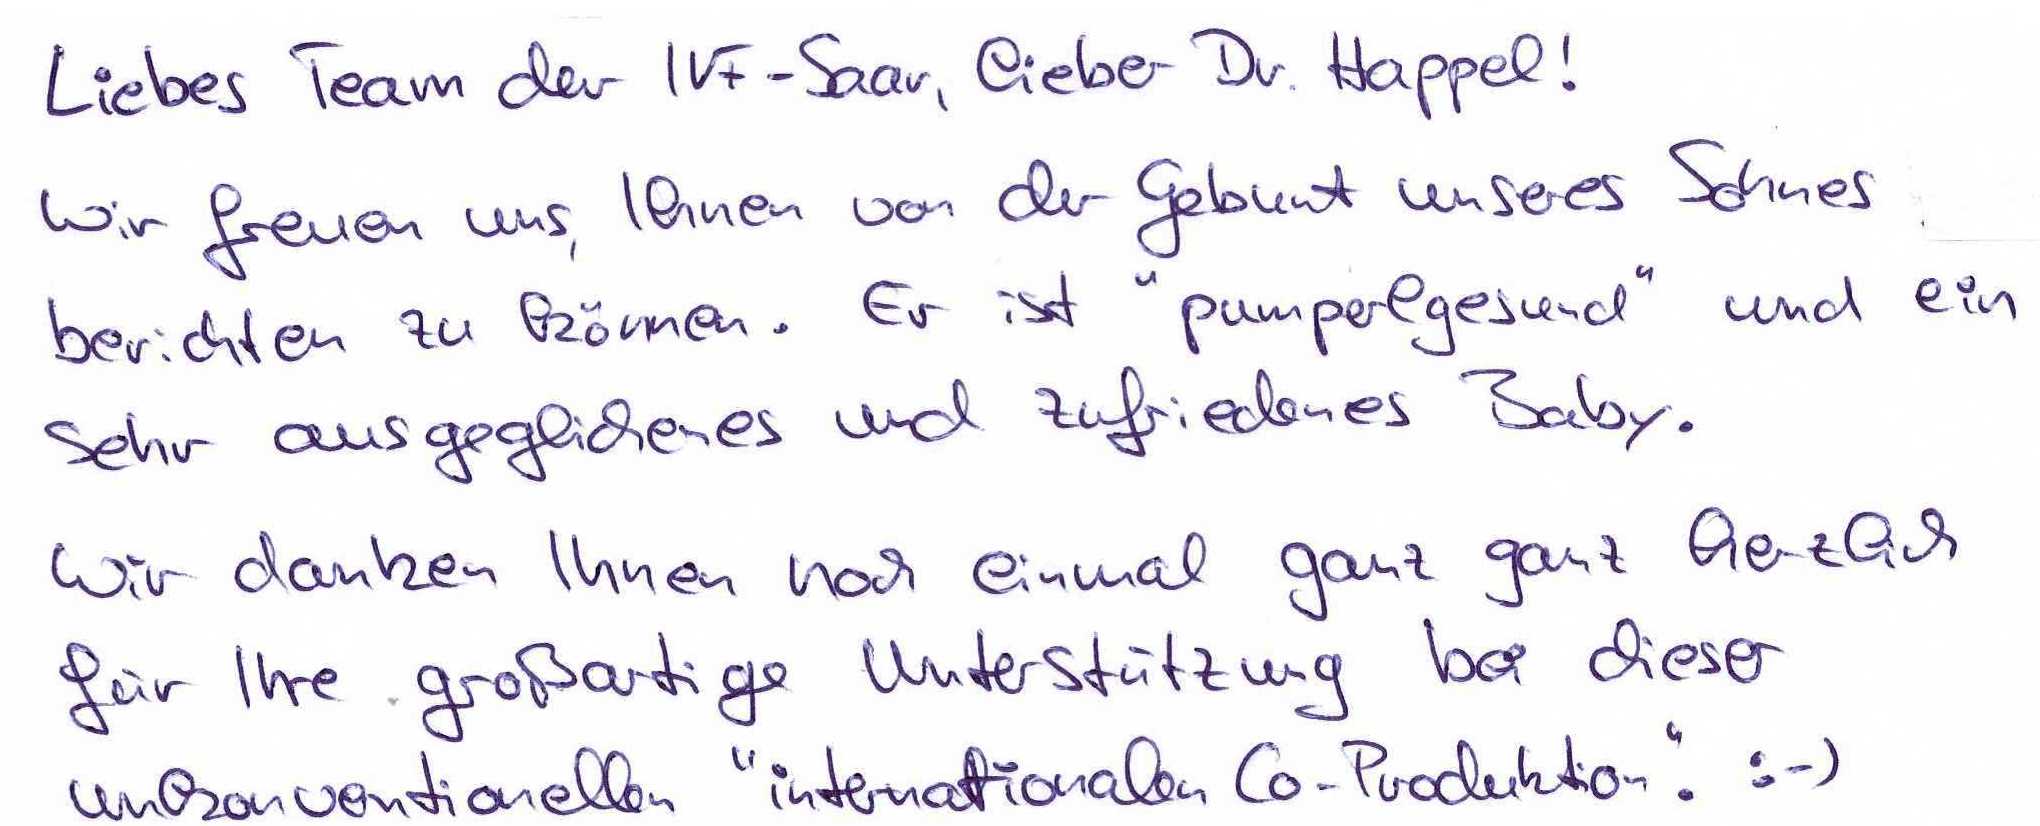 Liebes Team der IVF-Saar, lieber Dr. Happel!
Wir freuen uns, Ihnen von der Geburt unseres Sohnes
berichten zu können. Er ist "pumperlgesund" und ein
sehr ausgeglichenes und zufriedenes Baby.
Wir danken Ihnen noch einmal ganz ganz herzlich
für Ihre großartige Unterstützung bei dieser
unkonventionellen "internationalen Co-Produktion". :-)